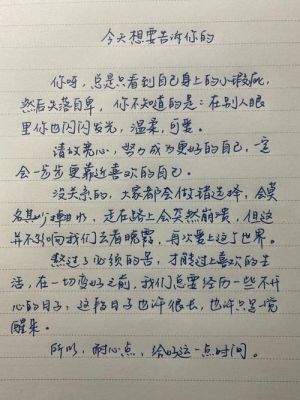 今天想要告诉你的
你呀，总是只看到自己身上的小瑕疵，
然后失落自卑，你不知道的是：在别人眼
里你也闪闪发光，温柔，可爱。
请放宽心，努力成为更好的自己，一定
会一步步更靠近喜欢的自己。
没关系的，大家都会做错选择，会莫
名其妙掉眼泪，走在路上会突然崩溃，但这
并不影响我们去看晚霞，再次爱上这个世界。
熬过了必须的苦，才能过上喜欢的生
活，在一切变好之前，我们总要经历一些不开
心的日子，这段日子也许很长，也许只是一觉
醒来。
所以，耐心点，给好运一点时间。